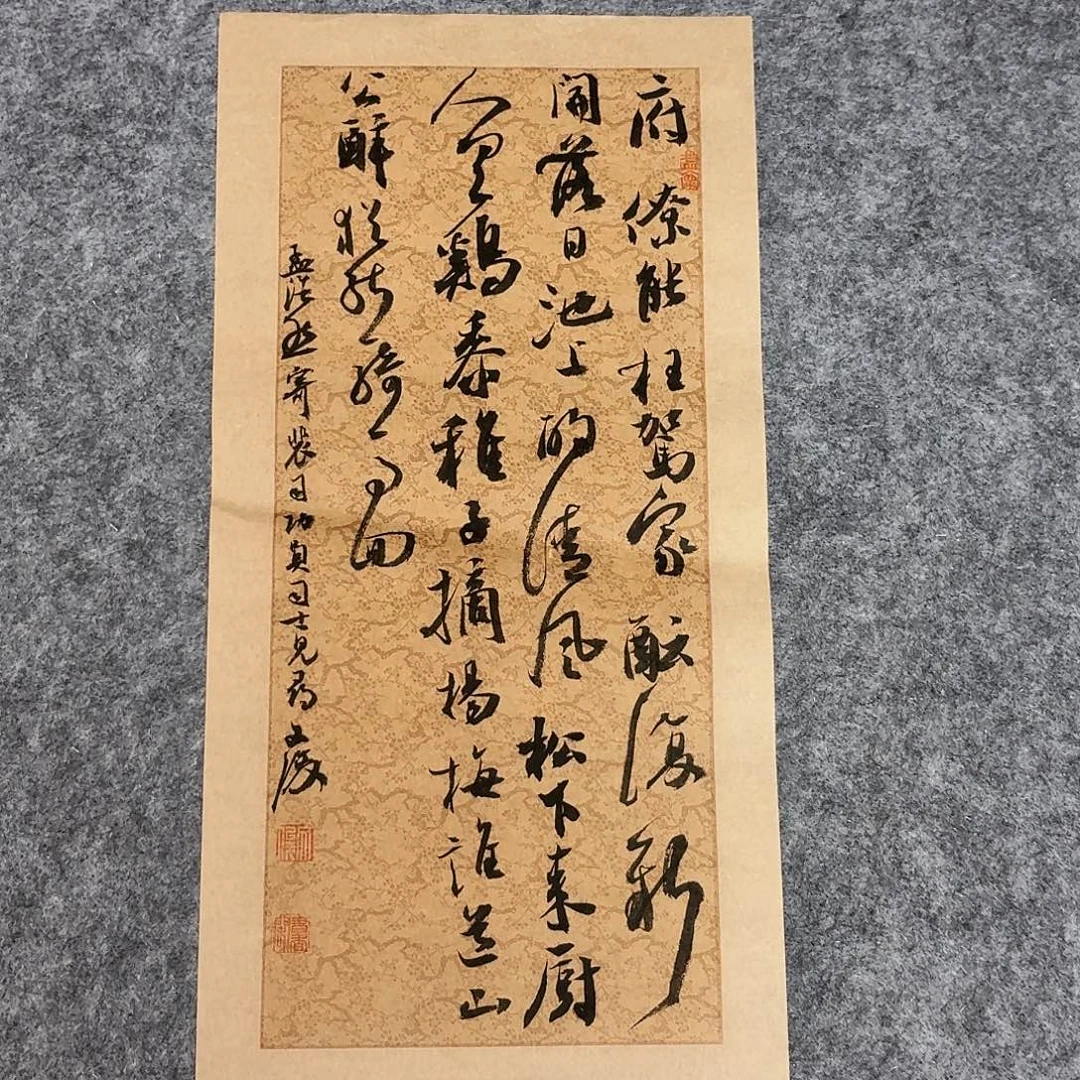 府僚能枉駕家酝復新
開落日池上酌清風松下来厨
人具鷄黍稚子摘楊梅誰道山
公酔猶能騎馬回
孟浩然寄裴司功員司士見尋